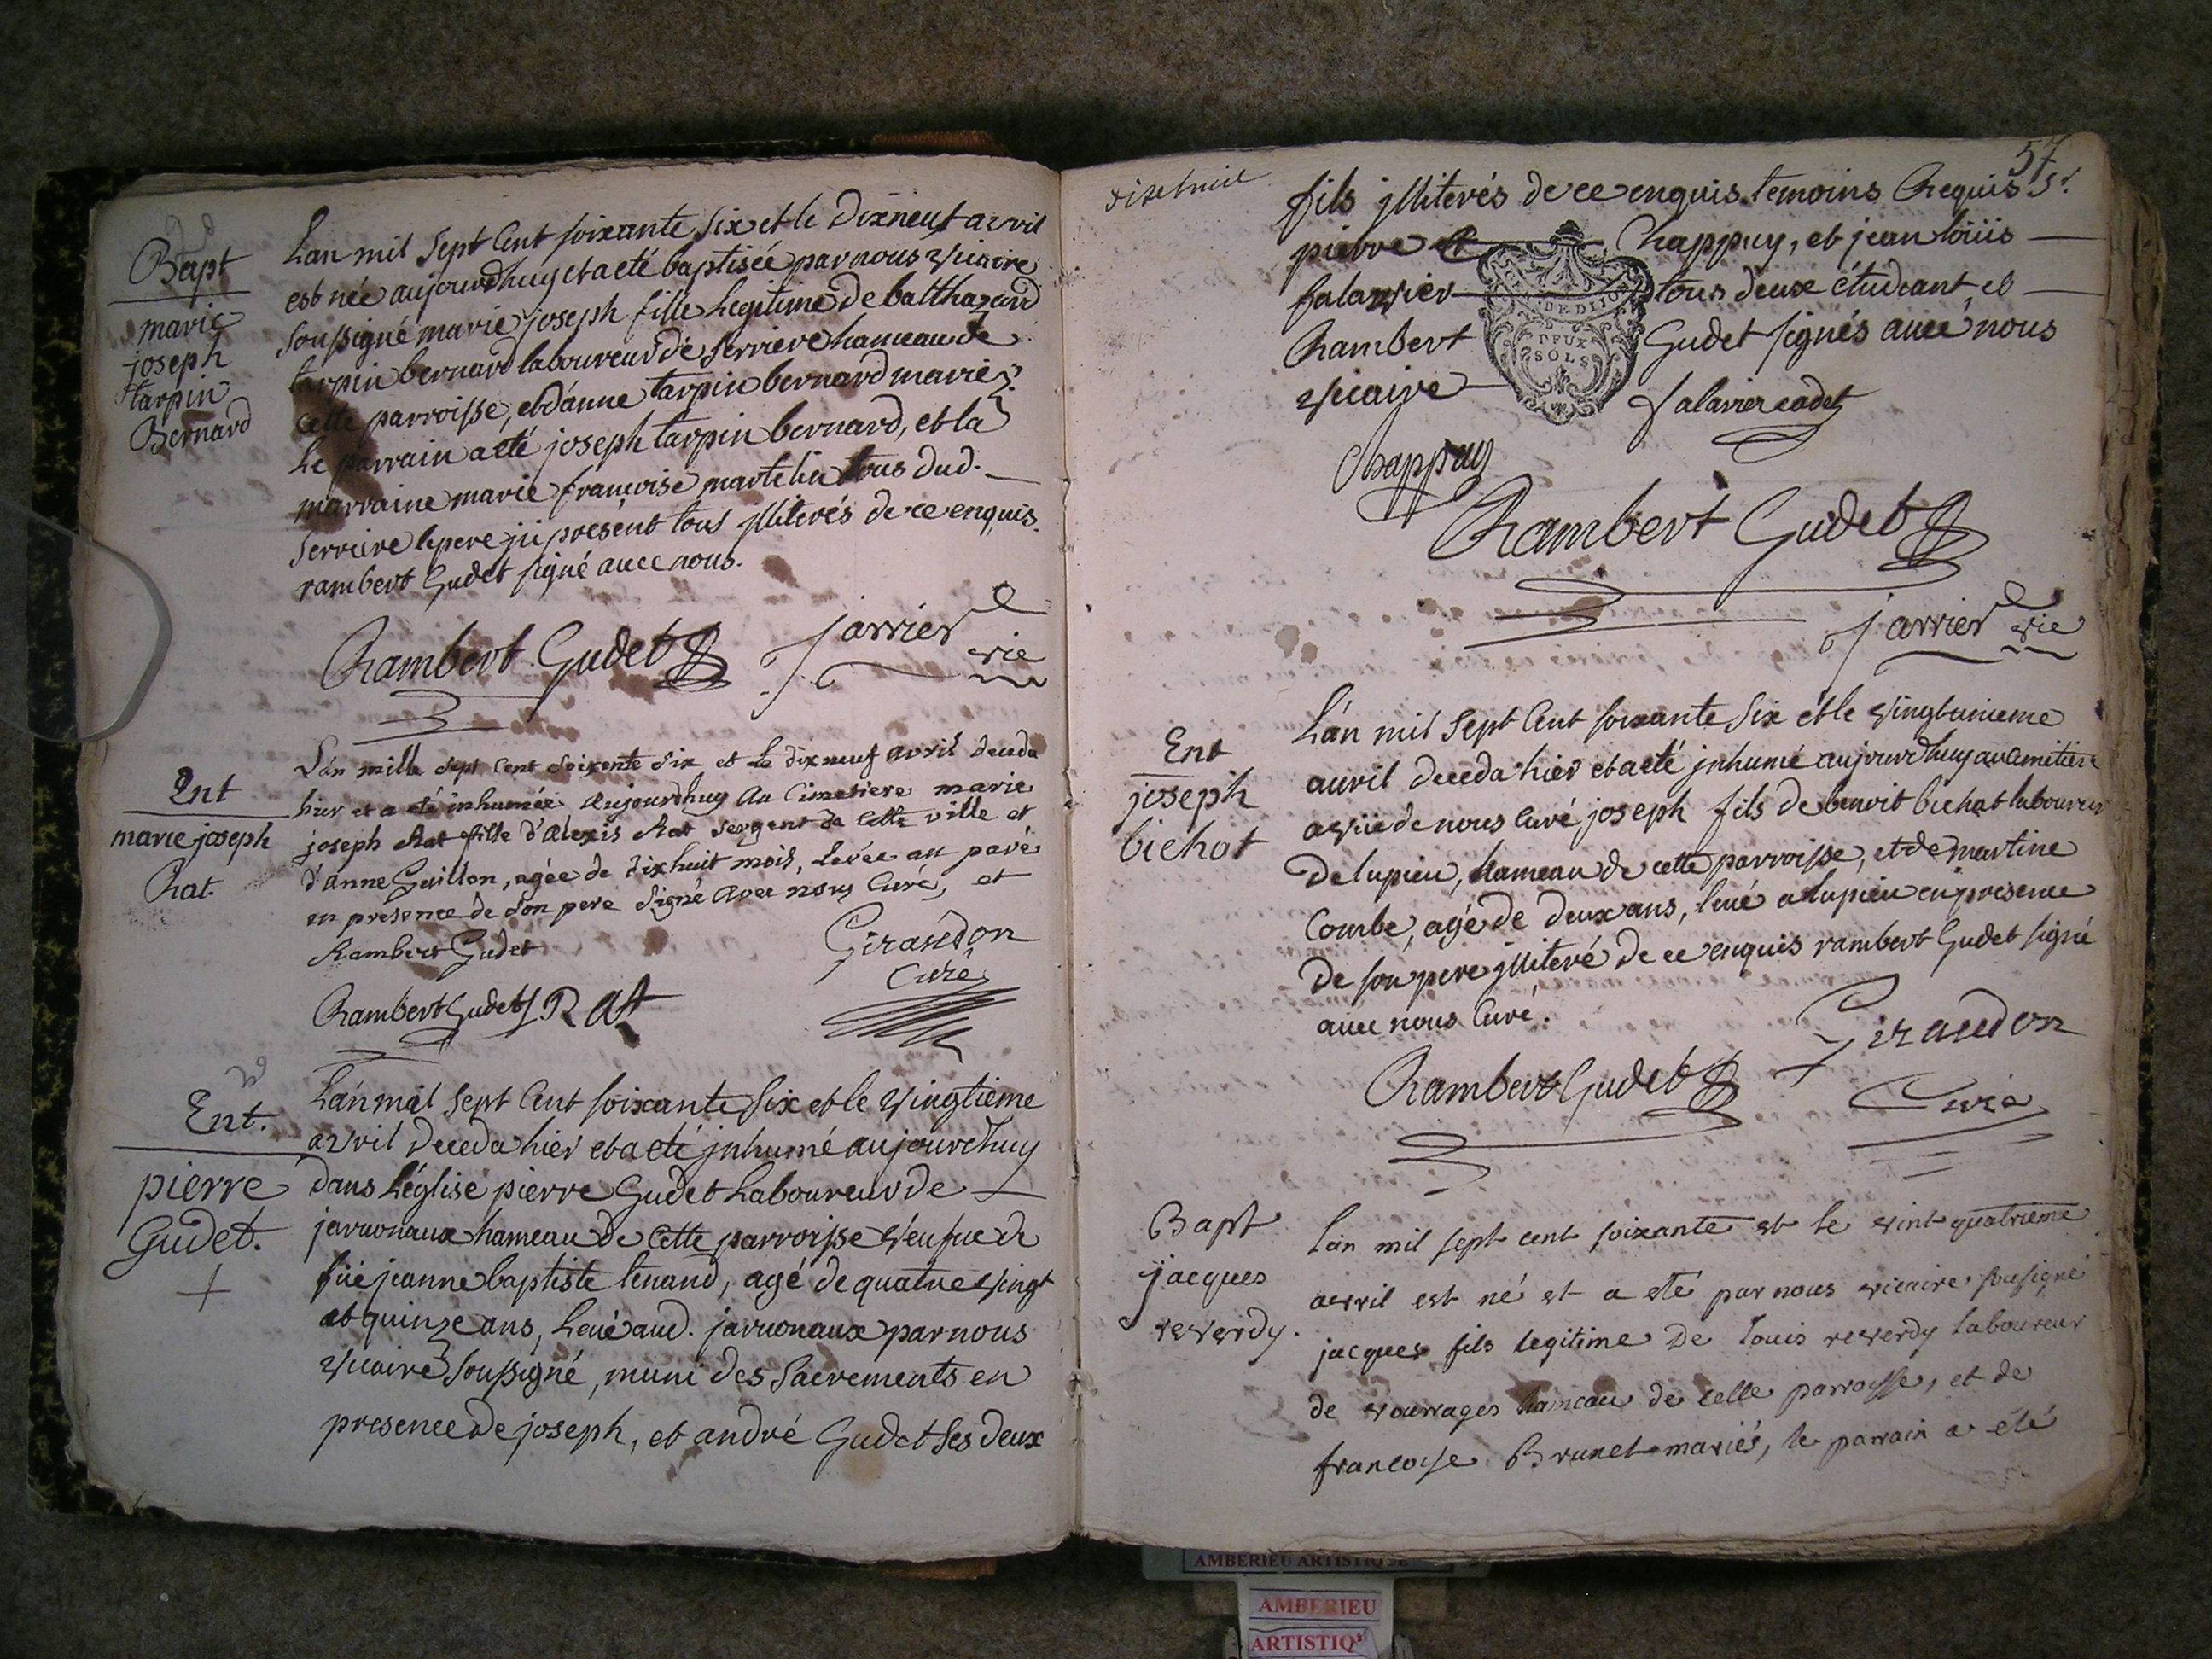 Bapt
marie
joseph
tarpin
Bernard
Lan mil sept Cent soixante six et le dixneuf avril
est née aujourdhuy et a eté baptisée par nous vicaire
soussigné marie joseph fille legitime de balthazard
tarpin bernard laboureur de serriere hameau de
cette parroisse, et d'anne tarpin bernard mariés
le parrain a eté joseph tarpin bernard, et la
marraine marie francoise martelin tous dud.
serriere le pere ji present tous jlliterés de ce enquis.
rambert Gudet signé avec nous.
Rambert Gudet
jarrier
vic
Ent
marie joseph
Rat.
L'an mille sept cent soixente six et le dixneuf avril deceda
hier et a eté inhumée aujourdhuy au Cimetiere marie
joseph Rat fille d'alexis Rat sergent de cette ville et
d'anne Guillon, agée de dixhuit mois, levée au pavé
en presence de son pere signé avec nous Curé, et
Rambert Gudet
Giraudon
Curé
Rambert Gudet Rat
Ent.
pierre
Gudet.
L'an mil sept Cent soixante six et le vingtieme
avril deceda hier et a eté jnhumé aujourdhuy
dans l'église pierre Gudet Laboureur de
jarvonaux hameau de cette parroisse veufue de
füe jeanne baptiste tenand, agé de quatre vingt
et quinze ans, levé aud. jarvonaux par nous
vicaire soussigné, muni des sacrements en
presence de joseph, et andré Gudet ses deux
57
dixhuit
fils jlliterés de ce enquis temoins Requis sr.
pierre Chappuy, et jean loüis
falavier tous deux étudiant, et
Rambert Gudet signés avec nous
vicaire
GEN. DE DIJON
DEUX
SOLS
falavier cadet
Chappuy
Rambert Gudet
jarrier vic
Ent
joseph
bichat
L'an mil sept Cent soixante six et le vingtunieme
avril deceda hier et a eté jnhumé aujourdhuy au cimitiere
a vüe de nous Curé, joseph fils de benoit bichat laboureur
de lupieu, hameau de cette parroisse, et de martine
Combe, agé de deux ans, levé a lupieu en presence
de son pere jlliteré de ce enquis rambert Gudet signé
avec nous Curé.
Giraudon
Rambert Gudet
Curé
Bapt
jacques
reverdy.
L'an mil sept cent soixante et le vint quatrieme
avril est né et a eté par nous vicaire sousigné
jacques fils legitime de louis reverdy laboureur
de vourages hameau de cette parroisse, et de
francoise Brunet mariés, le parrain a eté
AMBERIEU ARTISTIQUE
AMBERIEU
ARTISTIQ